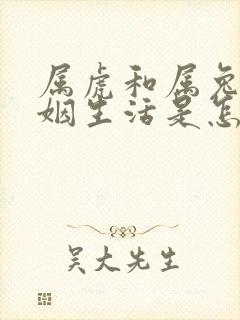 属虎和属兔
姻生活是怎
吴大先生